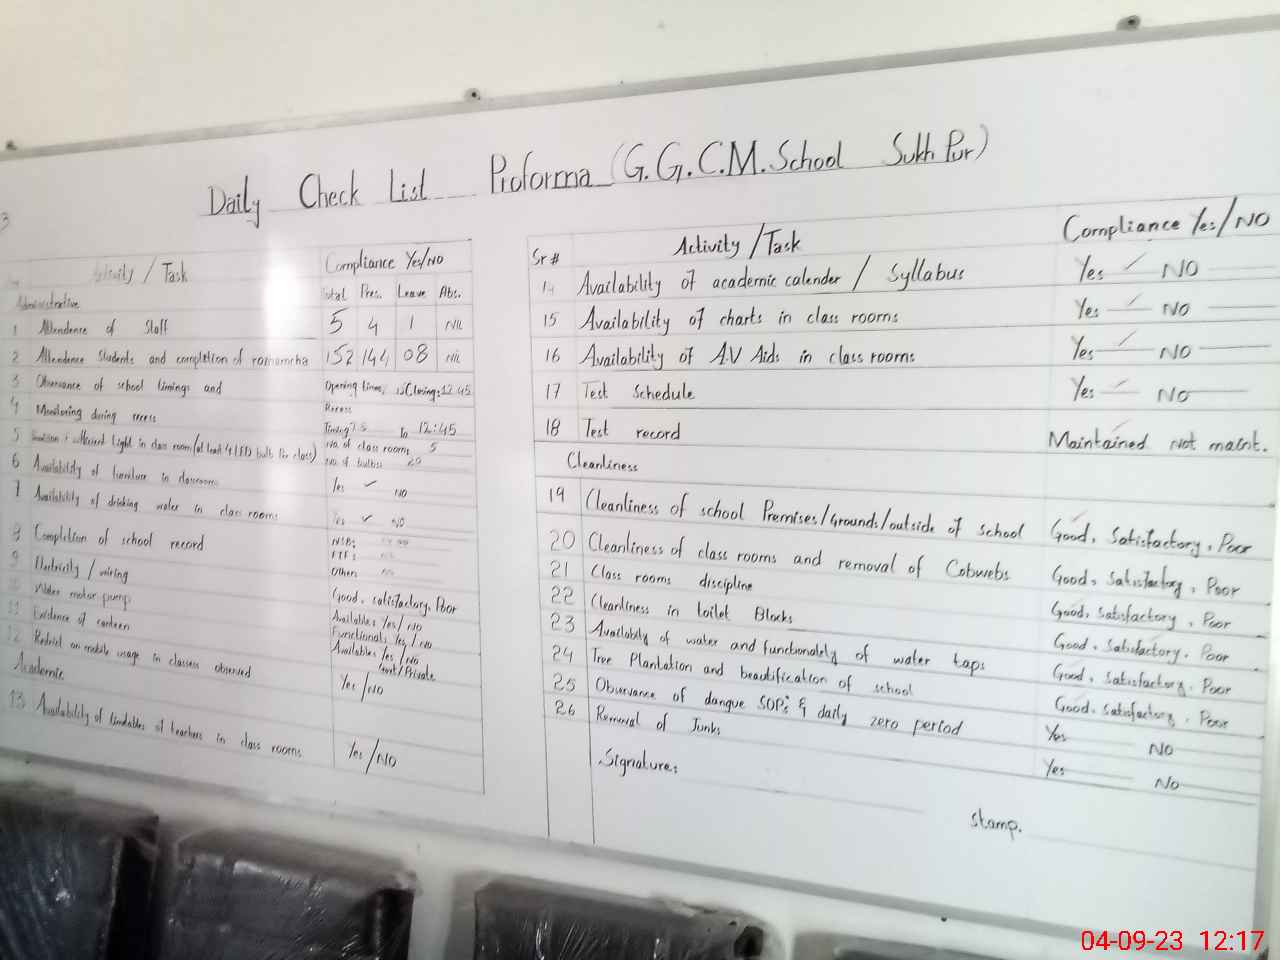 Daily Check List Proforma (G.G.C.M.School Sukh Pur)
3
Activity / Task Compliance Yes/NO
Administrative Total Pres. Leave Abs.
1 Attendence of Staff 5 4 1 NIL
2 Attendence Students and completion of 152 144 08 NIL
3 Observance of school timings and Opening time, Closing:12:45
4 Monitoring during recess Recess Timing to 12:45
5 Light in class room(at least 4 LED bulb Per class) No. of class rooms 5
No. of bulbs 20
6 Availability of furniture in classrooms Yes ✓ NO
7 Availability of drinking water in class rooms Yes ✓ NO
8 Completion of school record NSB:
FTF:
Other
9 Electricity / wiring Good, satisfactory, Poor
10 Water motor pump Available: Yes/NO
Functional: Yes/NO
11 Evidence of canteen Available: Yes/NO
Govt/Private
12 Restrict on mobile usage in classes observed Yes/NO
Academic
13 Availability of timetables of teachers in class rooms Yes/NO
Sr# Activity/Task Compliance Yes/NO
14 Availability of academic calender / Syllabus Yes ✓ NO
15 Availability of charts in class rooms Yes ✓ NO
16 Availability of A.V Aids in class rooms Yes ✓ NO
17 Test Schedule Yes ✓ NO
18 Test record Maintained Not maint.
Cleanliness
19 Cleanliness of school Premises/Grounds/outside of school Good, Satisfactory, Poor
20 Cleanliness of class rooms and removal of Cobwebs Good, Satisfactory, Poor
21 Class rooms discipline Good, Satisfactory, Poor
22 Cleanliness in toilet Blocks Good, Satisfactory, Poor
23 Availabily of water and functionalely of water taps Good, Satisfactory, Poor
24 Tree Plantation and beautification of school Good, Satisfactory, Poor
25 Observance of dangue SOP's & daily zero period Yes NO
26 Removal of Junks Yes NO
Signature:
stamp.
04-09-23 12:17